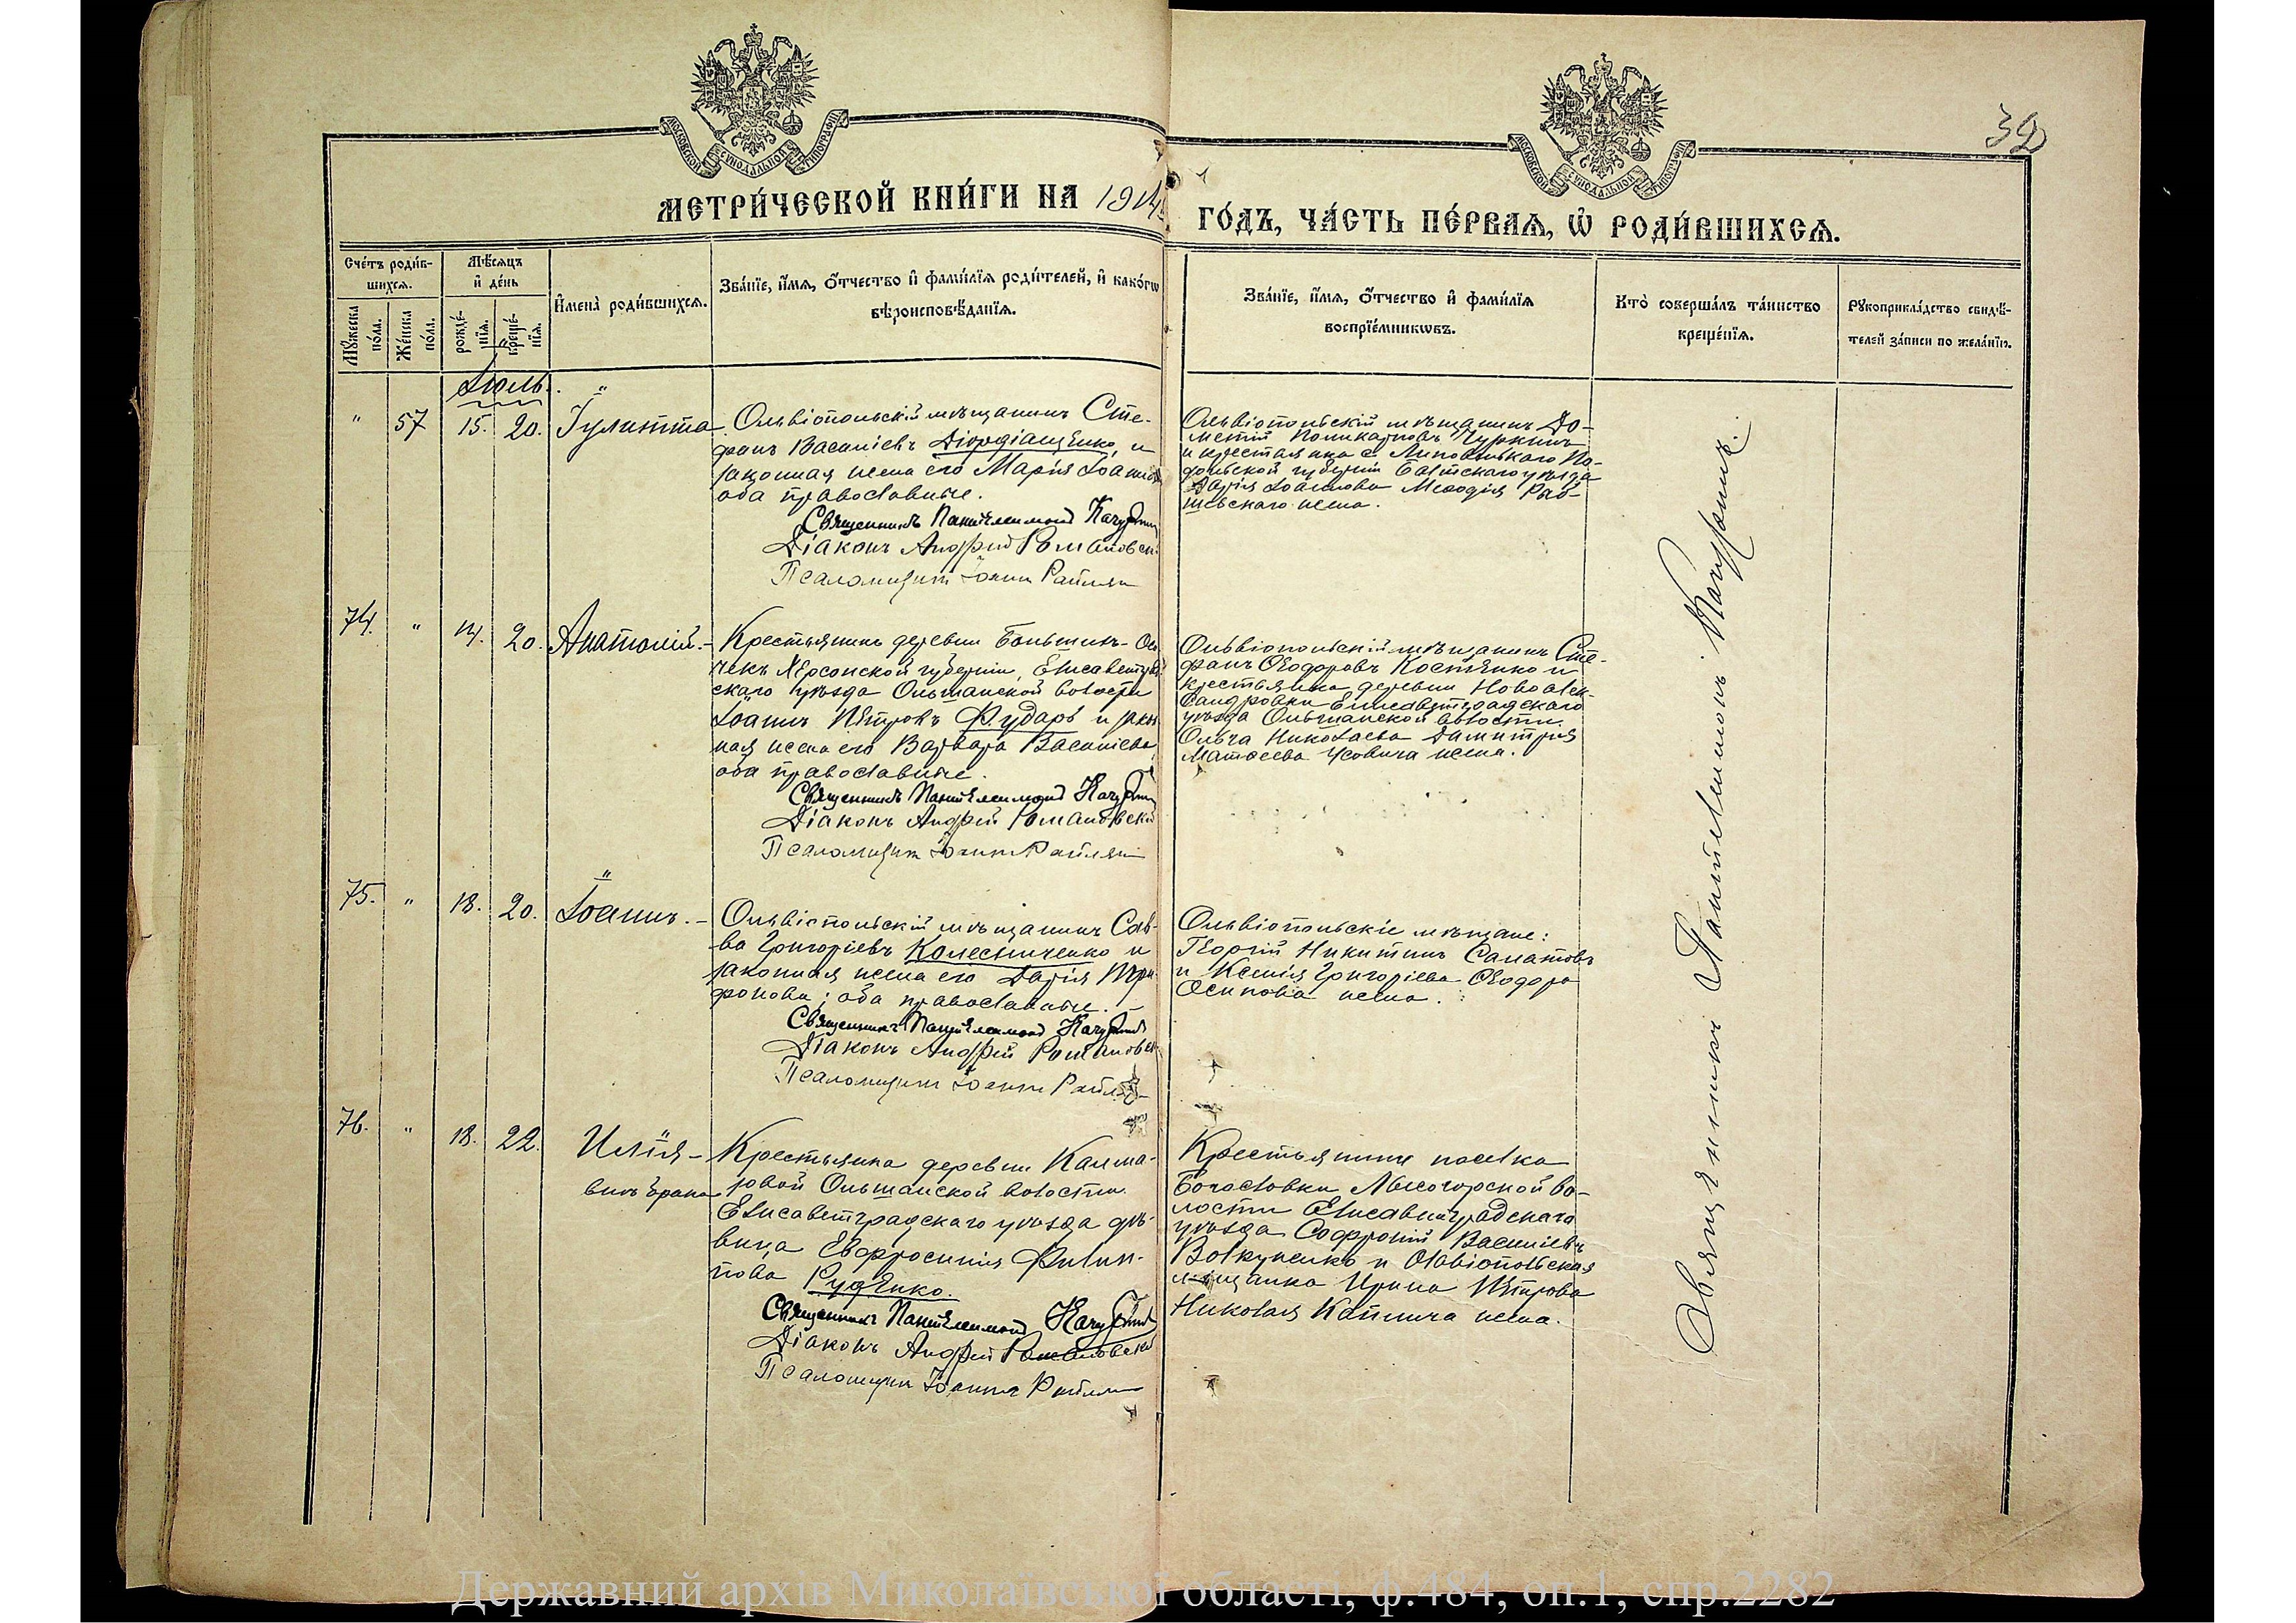 МОСКОВСКОЙ СѴНОДАЛЬНОЙ ТИПОГРАФІИ
МОСКОВСКОЙ СѴНОДАЛЬНОЙ ТИПОГРАФІИ
32
МЕТРИ́ЧЕСКОЙ КНИ́ГИ НА 1914
ГО́ДЪ, ЧА́СТЬ ПЕ́РВАѦ, Ѡ҆ РОДИ́ВШИХСѦ.
Сче́тъ роди́в-
шихсѧ.
Мѣ́сѧцъ
и҆ де́нь
И҆мена̀ роди́вшихсѧ.
Зва́нїе, и҆́мѧ, ѻ҆́тчество и҆ фами́лїѧ роди́телей, и҆ како́гѡ
вѣроисповѣ́данїѧ.
Мꙋ́жеска
по́ла.
Же́нска
по́ла.
рожде́-
нїѧ.
креще́-
нїѧ.
Зва́нїе, и҆́мѧ, ѻ҆́тчество и҆ фами́лїѧ
воспрїе́мникѡвъ.
Кто̀ соверша́лъ та́инство
креще́нїѧ.
Рꙋкоприкла́дство свидѣ́-
телей за́писи по жела́нїю.
Іюль.
" 57 15. 20. Іулитта
Ольвіопольскій мѣщанинъ Сте-
фанъ Василіевъ Діордіащенко, и
законная жена его Марія Іоаннова
оба православные.
Священникъ Пантелеимонъ
Діаконъ Андрей Романовскій
Псаломщикъ Іоаннъ
Ольвіопольскій мѣщанинъ До-
метій Поликарповъ Чуркинъ
и крестьянка с. Липовенькаго По-
дольской губерніи Балтскаго уѣзда
Дарія Іоаннова Меѳодія
жена.
74. " 14. 20. Анатолій.-
Крестьянинъ деревни
Херсонской губерніи, Елисаветград-
скаго уѣзда Ольшанской волости
Іоаннъ Петровъ Фударь и закон-
ная жена его Варвара Василіева
оба православные.
Священникъ Пантелеимонъ
Діаконъ Андрей Романовскій
Псаломщикъ Іоаннъ
Ольвіопольскій мѣщанинъ Сте-
фанъ Ѳеодоровъ Костенко и
крестьянка деревни Новоалек-
сандровки Елисаветградскаго
уѣзда Ольшанской волости
Ольга Николаева Димитрія
Матѳеева Усовича жена.
75. " 18. 20. Іоаннъ.-
Ольвіопольскій мѣщанинъ Сав-
ва Григоріевъ Колесниченко и
законная жена его Дарія Три-
фонова; оба православные.-
Священникъ Пантелеимонъ
Діаконъ Андрей Романовскій
Псаломщикъ Іоаннъ
Ольвіопольскіе мѣщане:
Георгій Никитинъ Салатовъ
и Ксенія Григоріева Ѳеодора
Осипова жена.
76. " 18. 22. Илія-
внѣ брака
Крестьянка деревни Калма-
зовой Ольшанской волости
Елисаветградскаго уѣзда дѣ-
вица Евфросинія Филип-
пова Руденко.
Священникъ Пантелеимонъ
Діаконъ Андрей Романовскій
Псаломщикъ Іоаннъ
Крестьянинъ поселка
Богословки Лысогорской во-
лости Елисаветградскаго
уѣзда Софроній Василіевъ
и Ольвіопольская
мѣщанка Ирина Петрова
Николая жена.
Священникъ Пантелеимонъ
Державний архів Миколаївської області, ф.484, оп.1, спр.2282